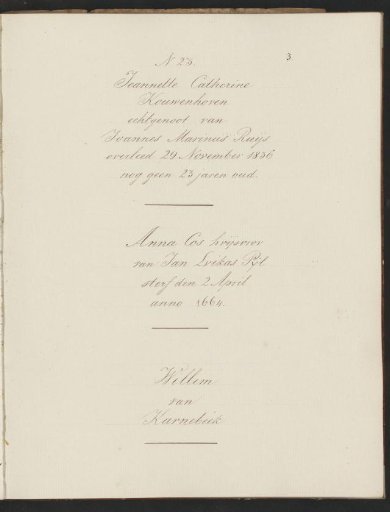 N 23.
3
Jeannette Catherine
Kouwenhoven
echtgenoot van
Joannes Marinus Ruijs
overleed 29 November 1836
nog geen 23 jaren oud.
Anna Cos
van Jan
sterf den 2 April
anno 1664.
Willem
van
Karnebeek